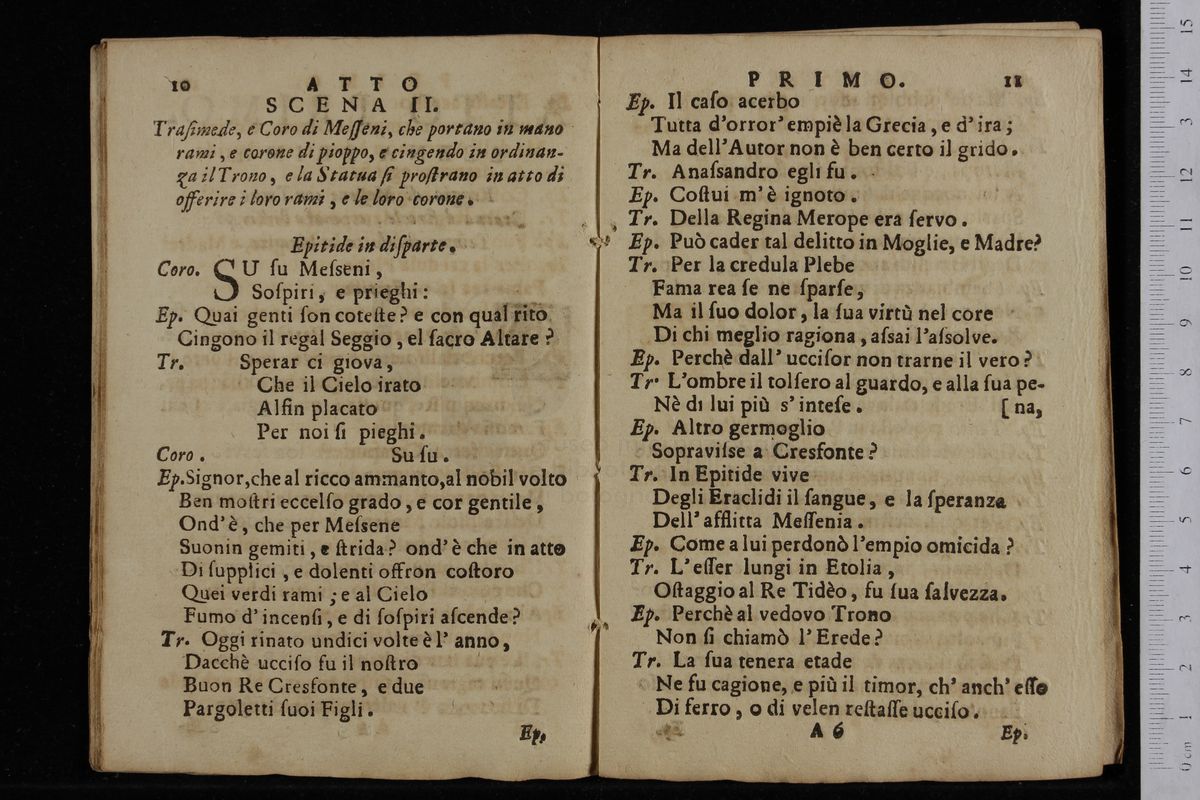 10 ATTO
SCENA II.
Traſimede, e Coro di Meſſeni, che portano in mano
rami, e corone di pioppo, e cingendo in ordinan-
za il Trono, e la Statua ſi proſtrano in atto di
offerire i loro rami, e le loro corone.
Epitide in diſparte.
Coro. SU ſu Meſseni,
Soſpiri, e prieghi:
Ep. Quai genti ſon coteſte? e con qual rito
Cingono il regal Seggio, el ſacro Altare?
Tr. Sperar ci giova,
Che il Cielo irato
Alfin placato
Per noi ſi pieghi.
Coro. Su ſu.
Ep. Signor, che al ricco ammanto, al nobil volto
Ben moſtri eccelſo grado, e cor gentile,
Ond' è, che per Meſsene
Suonin gemiti, e ſtrida? ond' è che in atto
Di ſupplici, e dolenti offron coſtoro
Quei verdi rami; e al Cielo
Fumo d' incenſi, e di ſoſpiri aſcende?
Tr. Oggi rinato undici volte è l' anno,
Dacchè ucciſo fu il noſtro
Buon Re Cresfonte, e due
Pargoletti ſuoi Figli.
Ep.
PRIMO. 11
Ep. Il caſo acerbo
Tutta d'orror' empiè la Grecia, e d' ira;
Ma dell' Autor non è ben certo il grido.
Tr. Anaſsandro egli fu.
Ep. Coſtui m' è ignoto.
Tr. Della Regina Merope era ſervo.
Ep. Può cader tal delitto in Moglie, e Madre?
Tr. Per la credula Plebe
Fama rea ſe ne ſparſe,
Ma il ſuo dolor, la ſua virtù nel core
Di chi meglio ragiona, aſsai l'aſsolve.
Ep. Perchè dall' ucciſor non trarne il vero?
Tr. L'ombre il tolſero al guardo, e alla ſua pe-
Nè di lui più s' inteſe. [na,
Ep. Altro germoglio
Sopraviſse a Cresfonte?
Tr. In Epitide vive
Degli Eraclidi il ſangue, e la ſperanza
Dell' afflitta Meſſenia.
Ep. Come a lui perdonò l'empio omicida?
Tr. L' eſſer lungi in Etolia,
Oſtaggio al Re Tidèo, fu ſua ſalvezza.
Ep. Perchè al vedovo Trono
Non ſi chiamò l' Erede?
Tr. La ſua tenera etade
Ne fu cagione, e più il timor, ch' anch' eſſo
Di ferro, o di velen reſtaſſe ucciſo.
A 6 Ep.
0 cm 1 2 3 4 5 6 7 8 9 10 11 12 13 14 15